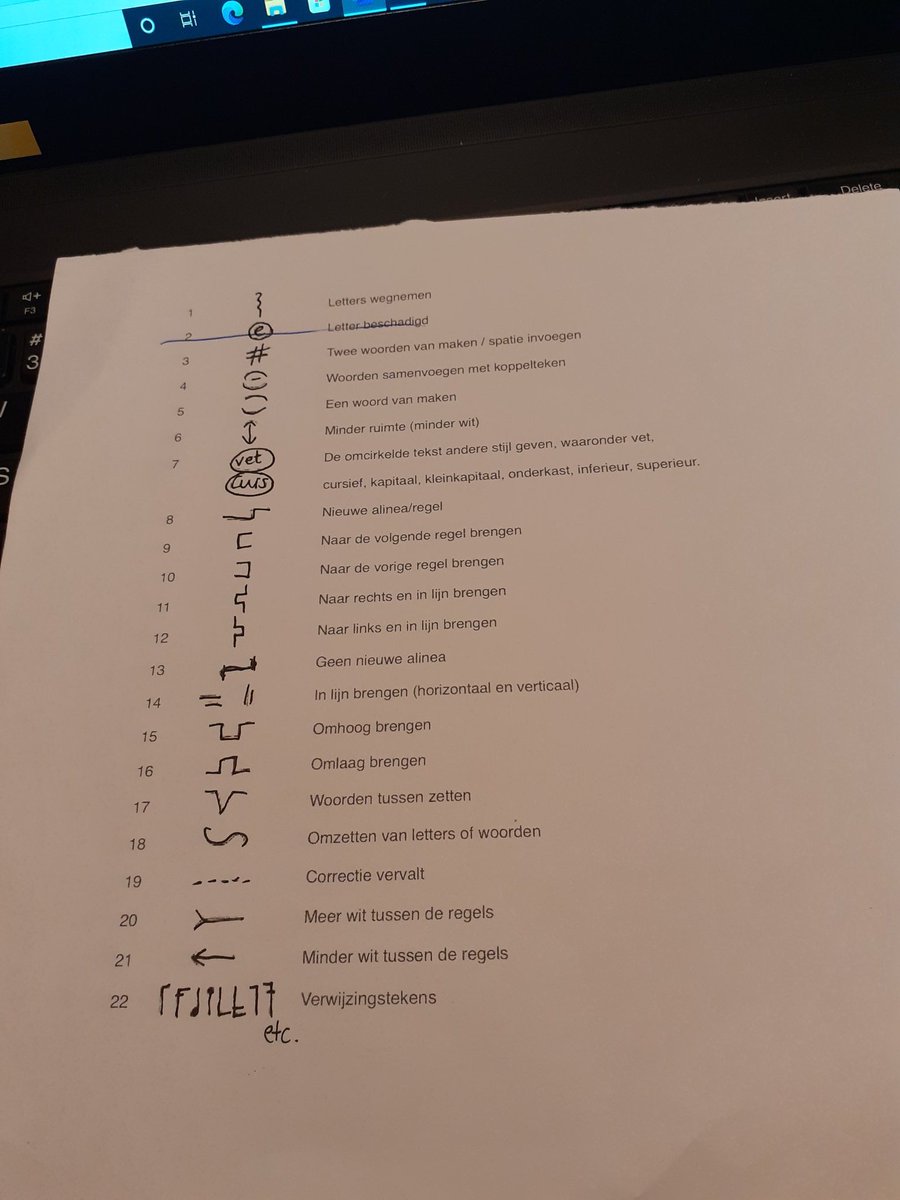 Insert
Delete
F3
#
3
S
1 Letters wegnemen
2 e Letter beschadigd
3 # Twee woorden van maken / spatie invoegen
4 (-) Woorden samenvoegen met koppelteken
5 () Een woord van maken
6 ↕ Minder ruimte (minder wit)
7 vet De omcirkelde tekst andere stijl geven, waaronder vet,
curs cursief, kapitaal, kleinkapitaal, onderkast, inferieur, superieur.
8 Nieuwe alinea/regel
9 Naar de volgende regel brengen
10 Naar de vorige regel brengen
11 Naar rechts en in lijn brengen
12 Naar links en in lijn brengen
13 Geen nieuwe alinea
14 = || In lijn brengen (horizontaal en verticaal)
15 Omhoog brengen
16 Omlaag brengen
17 Woorden tussen zetten
18 Omzetten van letters of woorden
19 Correctie vervalt
20 Meer wit tussen de regels
21 ← Minder wit tussen de regels
22 Verwijzingstekens
etc.